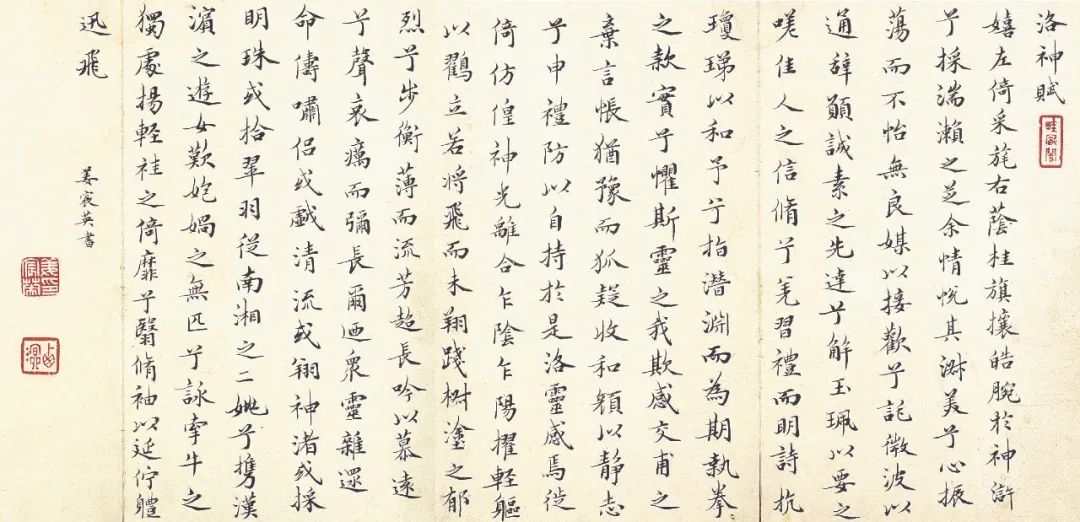 洛神賦
嬉左倚采旄右蔭桂旗攘皓腕於神滸
兮採湍瀨之芝余情悅其淑美兮心振
蕩而不怡無良媒以接歡兮託微波以
通辭願誠素之先達兮解玉珮以要之
嗟佳人之信脩兮羌習禮而明詩抗
瓊珶以和予兮指潛淵而為期執拳々
之款實兮懼斯靈之我欺感交甫之
棄言悵猶豫而狐疑收和顏以靜志
兮申禮防以自持於是洛靈感焉徙
倚仿偟神光離合乍陰乍陽擢輕軀
以鸖立若將飛而未翔踐樹塗之郁
烈兮步衡薄而流芳超長吟以慕遠
兮聲哀厲而彌長爾迺衆靈雜遝
命儔嘯侶或戲清流或翔神渚或採
明珠或拾翠羽從南湘之二姚兮攜漢
濱之遊女歎匏媧之無匹兮詠牽牛之
獨處揚輕袿之倚靡兮翳脩袖以延佇體
迅飛
姜宸英書